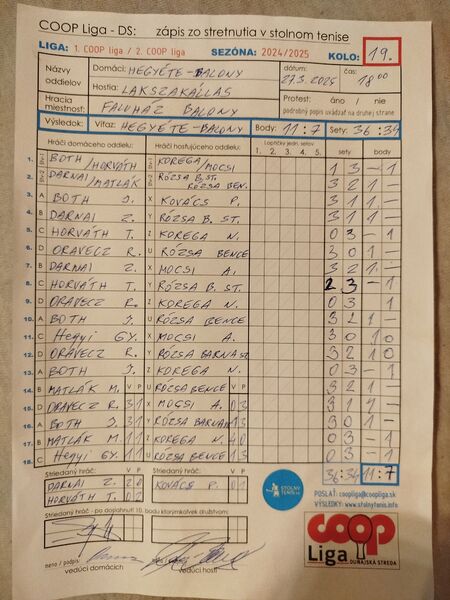 COOP Liga - DS: zápis zo stretnutia v stolnom tenise
LIGA: 1. COOP liga / 2. COOP liga SEZÓNA: 2024/2025 KOLO: 19.
Názvy oddielov Domáci: HEGYÉTE-BALONY dátum: 27.3.2025 čas: 18 00
Hostia: LAKSZAKÁLLAS
Hracia miestnosť: FALUHÁZ BALONY Protest: áno / nie
podrobný popis uvádzať na druhej strane
Výsledok: Víťaz: HEGYÉTE-BALONY Body: 11:7 Sety: 36:34
Hráči domáceho oddielu Hráči hosťujúceho oddielu Loptičky jedn. setov sety body
1. 2. 3. 4. 5.
1. BOTH/HORVÁTH KOREGA/MOCSI 1 3 – 1
2. DARNAI/MATLÁK RÓZSA B. ST. RÓZSA BEN. 3 2 1 –
3. A BOTH J. X KOVÁCS P. 3 1 1 –
4. B DARNAI Z. Y RÓZSA B. ST. 3 1 1 –
5. C HORVÁTH T. Z KOREGA N. 0 3 – 1
6. D ORAVECZ R. U RÓZSA BENCE 3 0 1 –
7. B DARNAI Z. X MOCSI A. 3 2 1 –
8. C HORVÁTH T. Y RÓZSA B. ST. 2 3 – 1
9. D ORAVECZ R. Z KOREGA N. 0 3 1
10. A BOTH J. U RÓZSA BENCE 3 2 1 –
11. C Hegyi GY. X MOCSI A. 3 0 1 0
12. D ORAVECZ R. Y RÓZSA BARNA ST 3 2 1 0
13. A BOTH J. Z KOREGA N. 0 3 – 1
14. B MATLÁK M. V P U RÓZSA BENCE V P 3 2 1 –
15. D ORAVECZ R. 3 1 X MOCSI A. 0 3 3 1 1 –
16. A BOTH J. 3 1 Y RÓZSA BARNA 1 3 3 0 1 –
17. B MATLÁK M. 1 1 Z KOREGA N. 4 0 0 3 – 1
18. C Hegyi GY. 1 1 U RÓZSA BENCE 1 3 0 3 – 1
Striedaný hráč: V P Striedaný hráč: V P 36:34 11:7
DARNAI Z. 2 0 KOVÁCS P. 0 1
HORVÁTH T. 0 2
STOLNÝ TENIS
POSLAŤ: coopliga@coopliga.sk
VÝSLEDKY: www.stolnytenis.info
Striedaný hráč - po dosiahnutí 10. bodu ktorýmkoľvek družstvom
coop
Liga
DUNAJSKÁ STREDA
meno / podpis:
vedúci domácich vedúci hostí